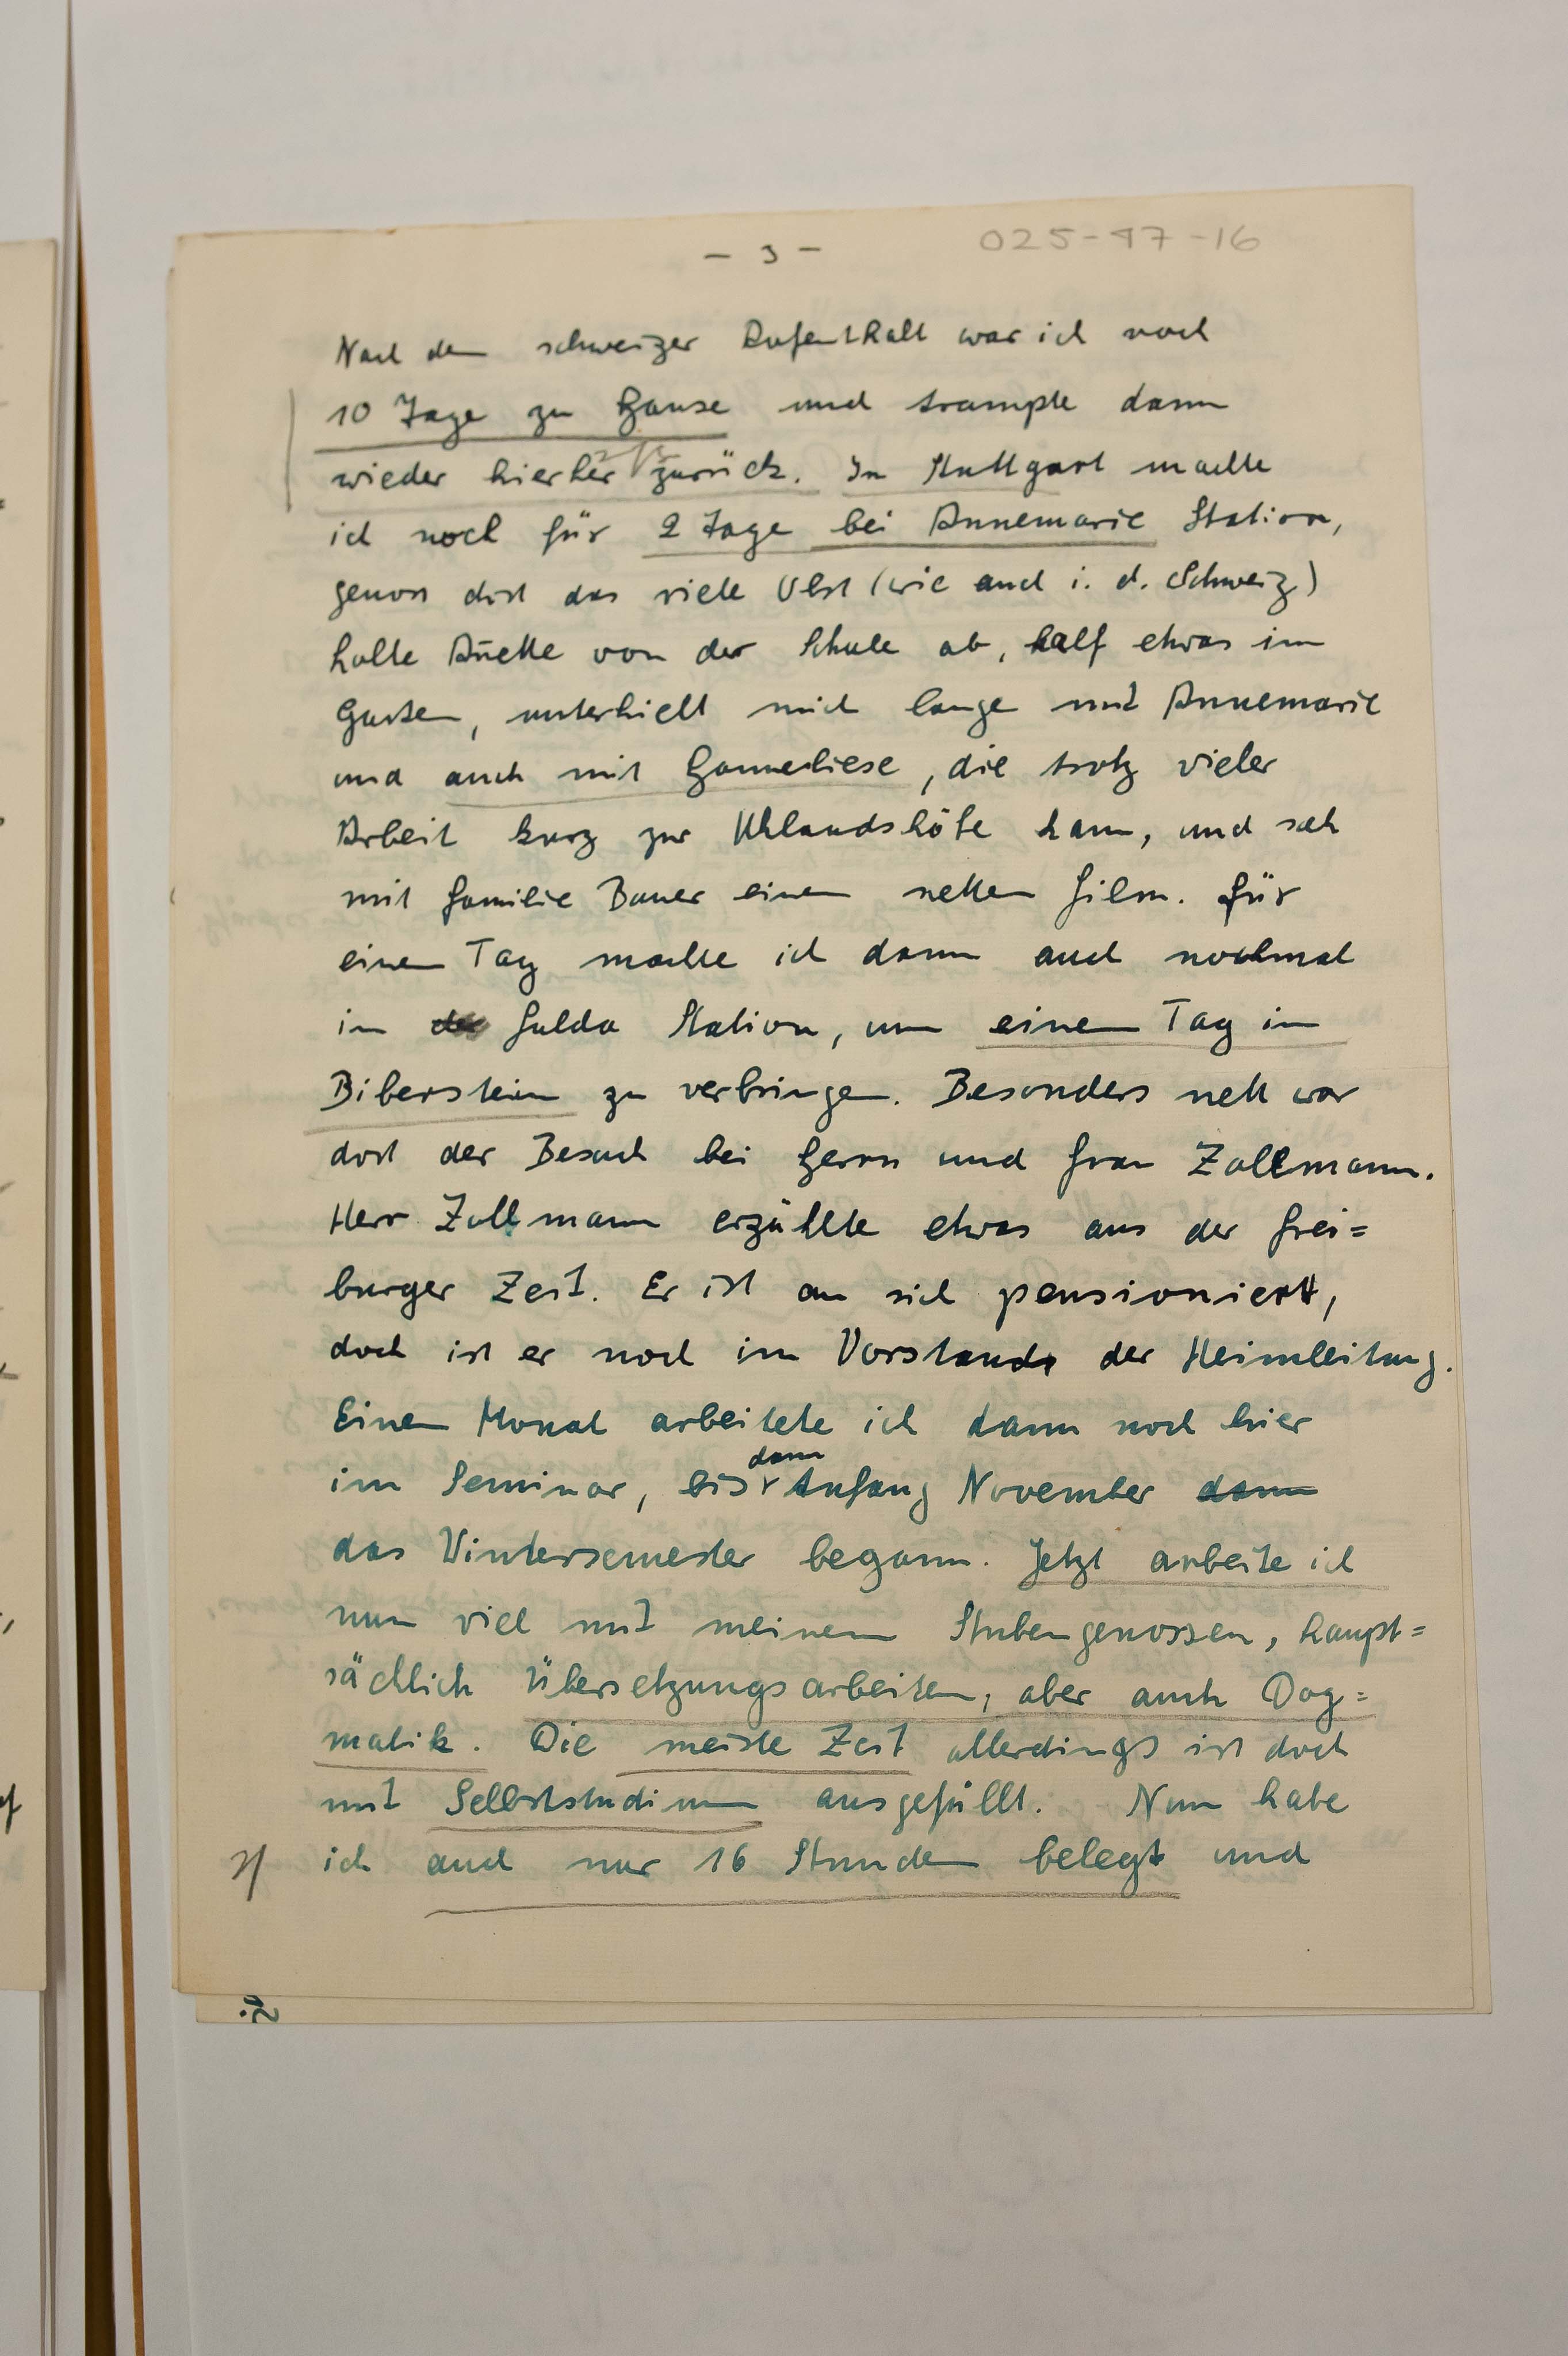 - 3 -
025-47-16
Nach dem schweizer Aufenthalt war ich noch
10 Tage zu Hause und trampte dann
wieder hierher zurück. In Stuttgart machte
ich noch für 2 Tage bei Annemarie Station,
genoss dort das viele Obst (wie auch i. d. Schweiz)
holte Anette von der Schule ab, half etwas im
Garten, unterhielt mich lange mit Annemarie
und auch mit Hanneliese, die trotz vieler
Arbeit kurz zur Uhlandshöhe kam, und sah
mit Familie Bauer einen netten Film. Für
einen Tag machte ich dann auch nochmal
in der Fulda Station, um einen Tag in
Biberstein zu verbringen. Besonders nett war
dort der Besuch bei Herrn und Frau Zollmann.
Herr Zollmann erzählte etwas aus der Frei=
burger Zeit. Er ist an sich pensioniert,
doch ist er noch im Vorstande der Heimleitung.
Einen Monat arbeitete ich dann noch hier
im Seminar, bis dann Anfang November dann
das Wintersemester begann. Jetzt arbeite ich
nun viel mit meinem Stubengenossen, haupt=
sächlich Übersetzungsarbeiten, aber auch Dog=
matik. Die meiste Zeit allerdings ist doch
mit Selbststudium ausgefüllt. Nun habe
ich auch nur 16 Stunden belegt und